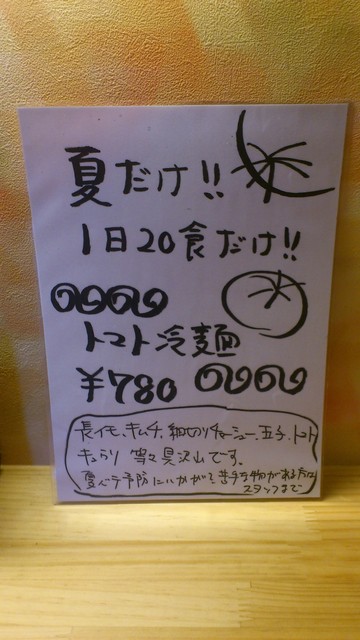 夏だけ!!
1日20食だけ!!
トマト冷麺
¥780
長イモ、キムチ、細切りチャーシュー、玉子、トマト
キュウリ 等々具沢山です。
夏バテ予防にいかが? 苦手な物がある方は
スタッフまで